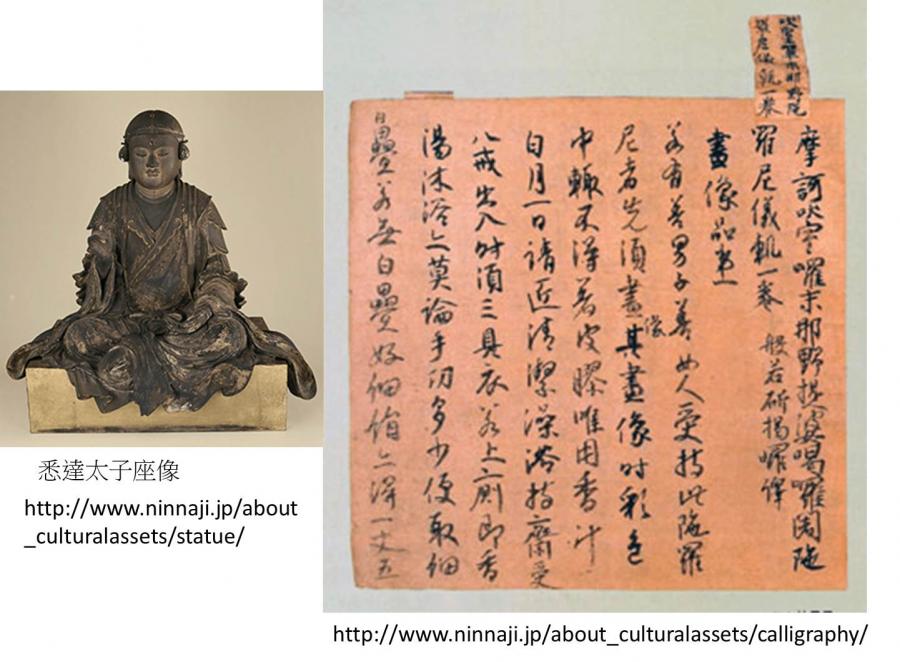 吠室囉末那野陀
羅尼儀軌一卷
摩訶吠室囉末那野提婆喝囉闍陁
羅尼儀軌一卷 般若斫羯囉譯
畫像品第一
若有善男子善女人受持此陁羅
尼者先須畫像其畫像時彩色
中輙不得著皮膠唯用香汁
白月一日請近清潔澡浴持齋受
八戒出入時須三具衣若上廁即香
湯沐浴亦莫論手功多少便取細
白疊若無白疊好細絹亦得一丈五
悉達太子座像
http://www.ninnaji.jp/about
_culturalassets/statue/
http://www.ninnaji.jp/about_culturalassets/calligraphy/